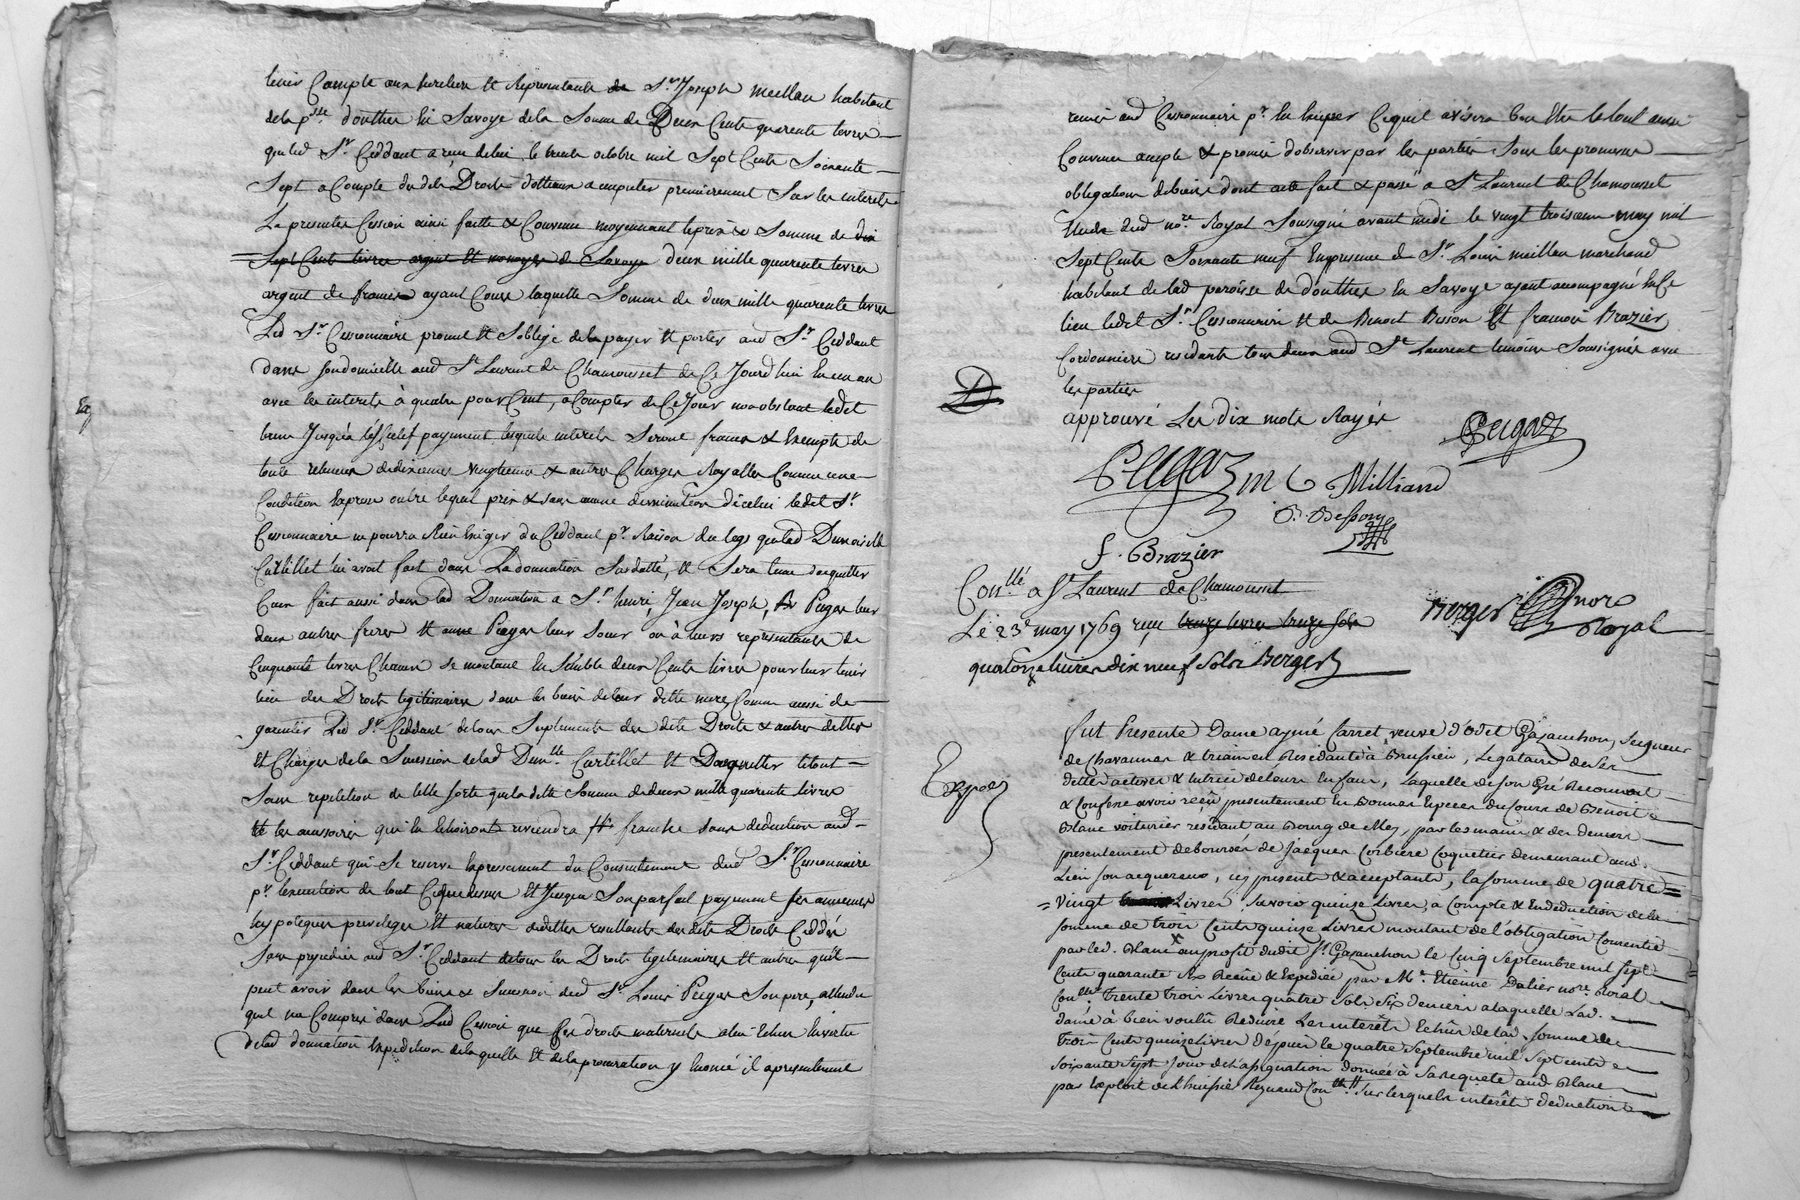 tenir Compte aux heritiers et Representants de Sr. Joseph meillan habitant
de la psse. d'outhes En Savoye de la Somme de Deux Cents quarente Livres
que led Sr. Ceddant a reçu de lui le trente octobre mil Sept Cents Soixante
Sept a Compte du dits Droits d'otteaux a imputer premierement Sur les interets
La presente Cession ainsi faitte & Convenue moyennant le prix & Somme de dix
Sept Cents livres argent et monoyes de Savoye deux mille quarente livres
argent de france ayant Cours laquelle Somme de deux mille quarente livres
Led Sr. Cessionnaire promet et S'oblige de la payer et porter aud Sr. Ceddant
dans son domicille aud St Laurent de Chamousset de Ce Jourd'hui En un an
avec les interets à quatre pour Cent, a Compter de Ce Jour nonobstant ledet
terme Jusqu'à l'effectif payement lesquels interets Seront francs & Exempts de
toute retenues de dixiemes vingtiemes & autres Charges Royalles Comme une
Condition Expresse outre lequel prix & sans aucune diminution d'icelui ledet Sr.
Cessionnaire ne pourra Rien Exiger du Ceddant pr. Raison du legs que lad Demoiselle
Curtillet lui avoit fait dans La donnation Susdatté, et Sera tenu d'acquitter
Ceux fait aussi dans lad Donnation a Sr. henri, Jean Joseph, Peigas leur
deux autres freres et anne Peigas leur Soeur ou à leurs representants de
Cinquante livres Chacun se montant En Semble deux Cents livres pour leur tenir
lieu des Droits legitimaires dans les biens de leur ditte mere Comme aussi de
garentir Led Sr. Ceddant de tous Suplements des dits Droits & autres dettes
Et Charges de la Succession de lad Demlle. Curtillet et D'acquitter le tout
Sans repetition de telle sorte que la ditte Somme de deux mille quarente livres
et les accessoires qui En Echoiront reviendra franche sans deduction aud
Sr. Ceddant qui Se reserve Expressement du Consentement dud Sr. Cessionnaire
pr. l'execution de tout Ce que dessus Et Jusqu'a Son parfait payement ses anciennes
hypoteques privileges et natures de dettes resultants des dits Droits Ceddés
Sans prejudice aud Sr. Ceddant de tous les Droits legitimaires et autres qu'il
peut avoir dans les biens & Succession dud Sr. Louis Peigas Son pere, attendu
quil na Compris dans Lad Cession que Ses droits maternels a lui Echus En vertu
de lad donnation Expedition de laquelle et de la procuration y Enoncé il a presentement
Ex
remis aud Cessionnaire pr. En huser Ce quil avisera bon Etre le tout ainsi
Convenu accepté & promis d'observer par les parties Sous les promesses
obligations de biens dont acte fait & passé a St Laurent de Chamousset
Etude dud nore. Royal Soussigné avant midi le vingt troisieme may mil
Sept Cents Soixante neuf En presence de Sr. Louis meillan marchand
habitant de lad paroisse de douthes En Savoye ayant accompagné En Ce
lieu ledet Sr. Cessionnaire et de Benoit Besson Et francois Brazier
Cordonniers residants tous deux aud St Laurent temoins Soussignés avec
les parties
approuvé Les dix mots Rayés
Peigaz
Peigaz
Milliand
B. Besson
f. Brazier
Conllé a St Laurent de Chamousset
Le 23e may 1769 reçu treize livres treize sols
quatorze livres dix neuf sols Berger
Berger nore
Royal
Expeé
fut Presente Dame aymé Jarret, veuve d'Odet Gajanchon, Seigneur
de Chavannes & triam en Residante à Brussieu, Legataire de Ses
dettes actives & tutrice de leurs Enfans, Laquelle de son Gré Reconnoit
& Confesse avoir reçü presentement En Bonnes Especes du Cours de Benoit
Blanc voiturier residant au Bourg de Mey, par les mains & des deniers
presentement debourser de Jacques Corbiere Coquetier demeurant aud.
Lieu son acquereur, icy present & acceptant, la somme de quatre
vingt Livres, Savoir quinze Livres, a Compte & En deduction de la
somme de trois Cents quinze Livres montant de l'obligation Consentie
par led. Blanc au profit dudit Sr. Gajanchon le Cinq septembre mil sept
Cents quarante six Reçüe & Expediée par Me. Etienne Dalier nore. Royal
Conllée. Trente Trois Livres quatre Sols Six deniers a laquelle Lad.
dame à bien voulü Reduire Les interêts Echus de lad. somme de
Trois Cents quinze Livres depuis le quatre septembre mil sept cents
soixante sept Jour de l'assignation donnée à sa Requete aud. Blanc
par Exploit de l'huissié Reynaud Conllé. Sur lesquels interêts deduction